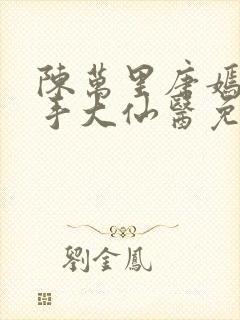 陳萬里唐嫣
手大仙醫免
劉金鳳